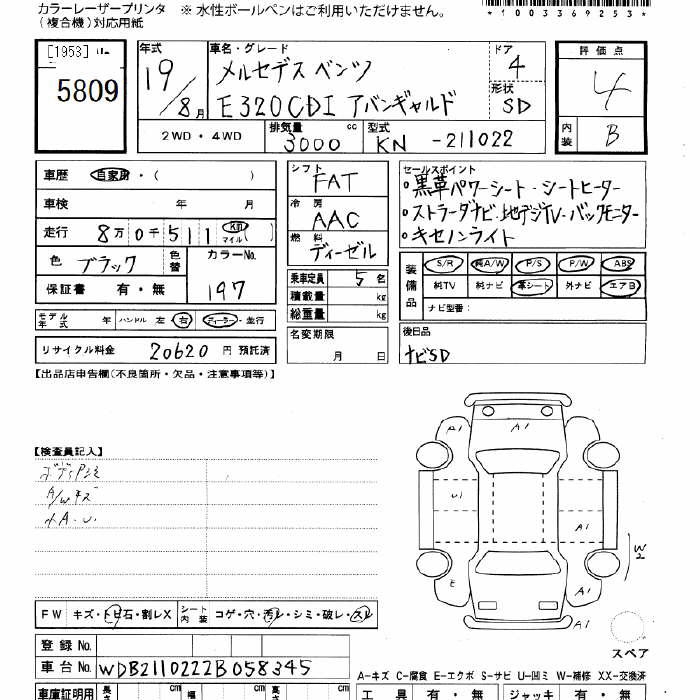 カラーレーザープリンタ ※ 水性ボールペンはご利用いただけません。
(複合機)対応用紙
*1003369253*
[1953]
5809
年式
19/8月
車名・グレード
メルセデス ベンツ
E320CDI アバンギャルド
ドア
4
形状
SD
評価点
4
内装
B
2WD・4WD
排気量
3000 cc
型式
KN -211022
車歴 自家用・(
車検 年 月
走行 8万0千511 km マイル )
色 ブラック
色替
カラーNo.
197
保証書 有・無
モデル年式 年
ハンドル 左・右
ディーラー・並行
リサイクル料金 20620 円 預託済
シフト
FAT
冷房
AAC
燃料
ディーゼル
乗車定員 5 名
積載量 kg
総重量 kg
名変期限
月 日
セールスポイント
・黒革パワーシート・シートヒーター
・ストラーダナビ・地デジTV・バックモニター
・キセノンライト
装備品
S/R 純A/W P/S P/W ABS
純TV 純ナビ 革シート 外ナビ エアB
ナビ型番:
後日品
ナビSD
【出品店申告欄(不良箇所・欠品・注意事項等)】
【検査員記入】
A/Wキズ
A1
A1
U1
A1
A1
E
A1
W2
スペア
FW キズ・トビ石・割レX
シート内装 コゲ・穴・汚レ・シミ・破レ・スレ
登録No.
車台No. WDB2110222B058345
A-キズ C-腐食 E-エクボ S-サビ U-凹ミ W-補修 XX-交換済
車庫証明用 長さ cm 幅 cm 高さ cm
工具 有・無 ジャッキ 有・無